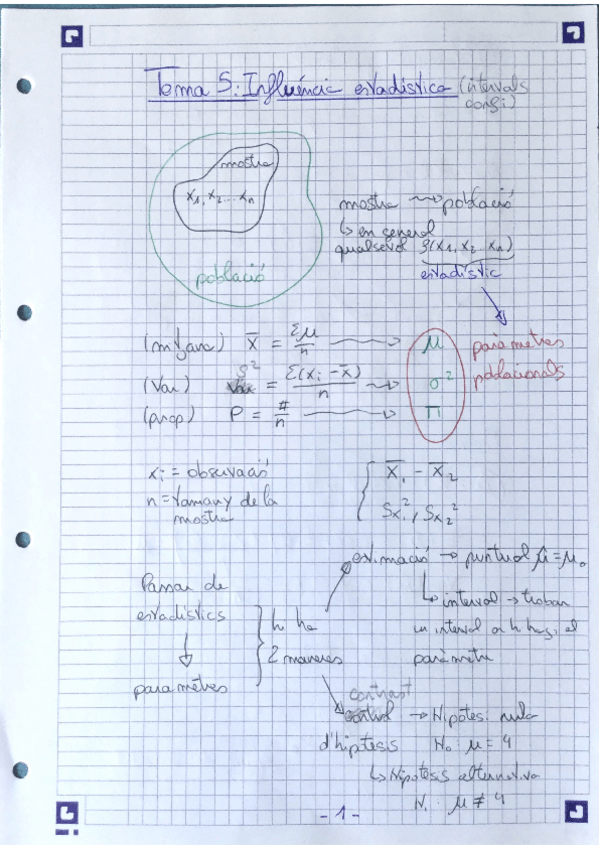 Tema 5: Influència estadística (intervals
confi)
mostra
x₁, x₂ ... xₙ
població
mostra ⟿ població
↳ en general
qualsevol g(x₁, x₂ xₙ)
estadístic
(mitjana) x̄ = Σμ/n → μ
(Var) S² = Σ(xᵢ - x̄)/n → σ²
(prop) P = #/n → Π
paràmetres
poblacionals
xᵢ = observació
n = tamany de la
mostra
{ X̄₁ - X̄₂
Sx₁², Sx₂²
Passar de
estadístics
↓
paramètres
hi ha
2 maneres
estimació → puntual μ̂ = μ₀
↳ interval → trobar
un interval on hi hagi el
paràmetre
contrast
d'hipòtesis
→ Hipòtesi nula
H₀: μ = 4
↳ Hipòtesis alternativa
H₁: μ ≠ 4
- 1 -